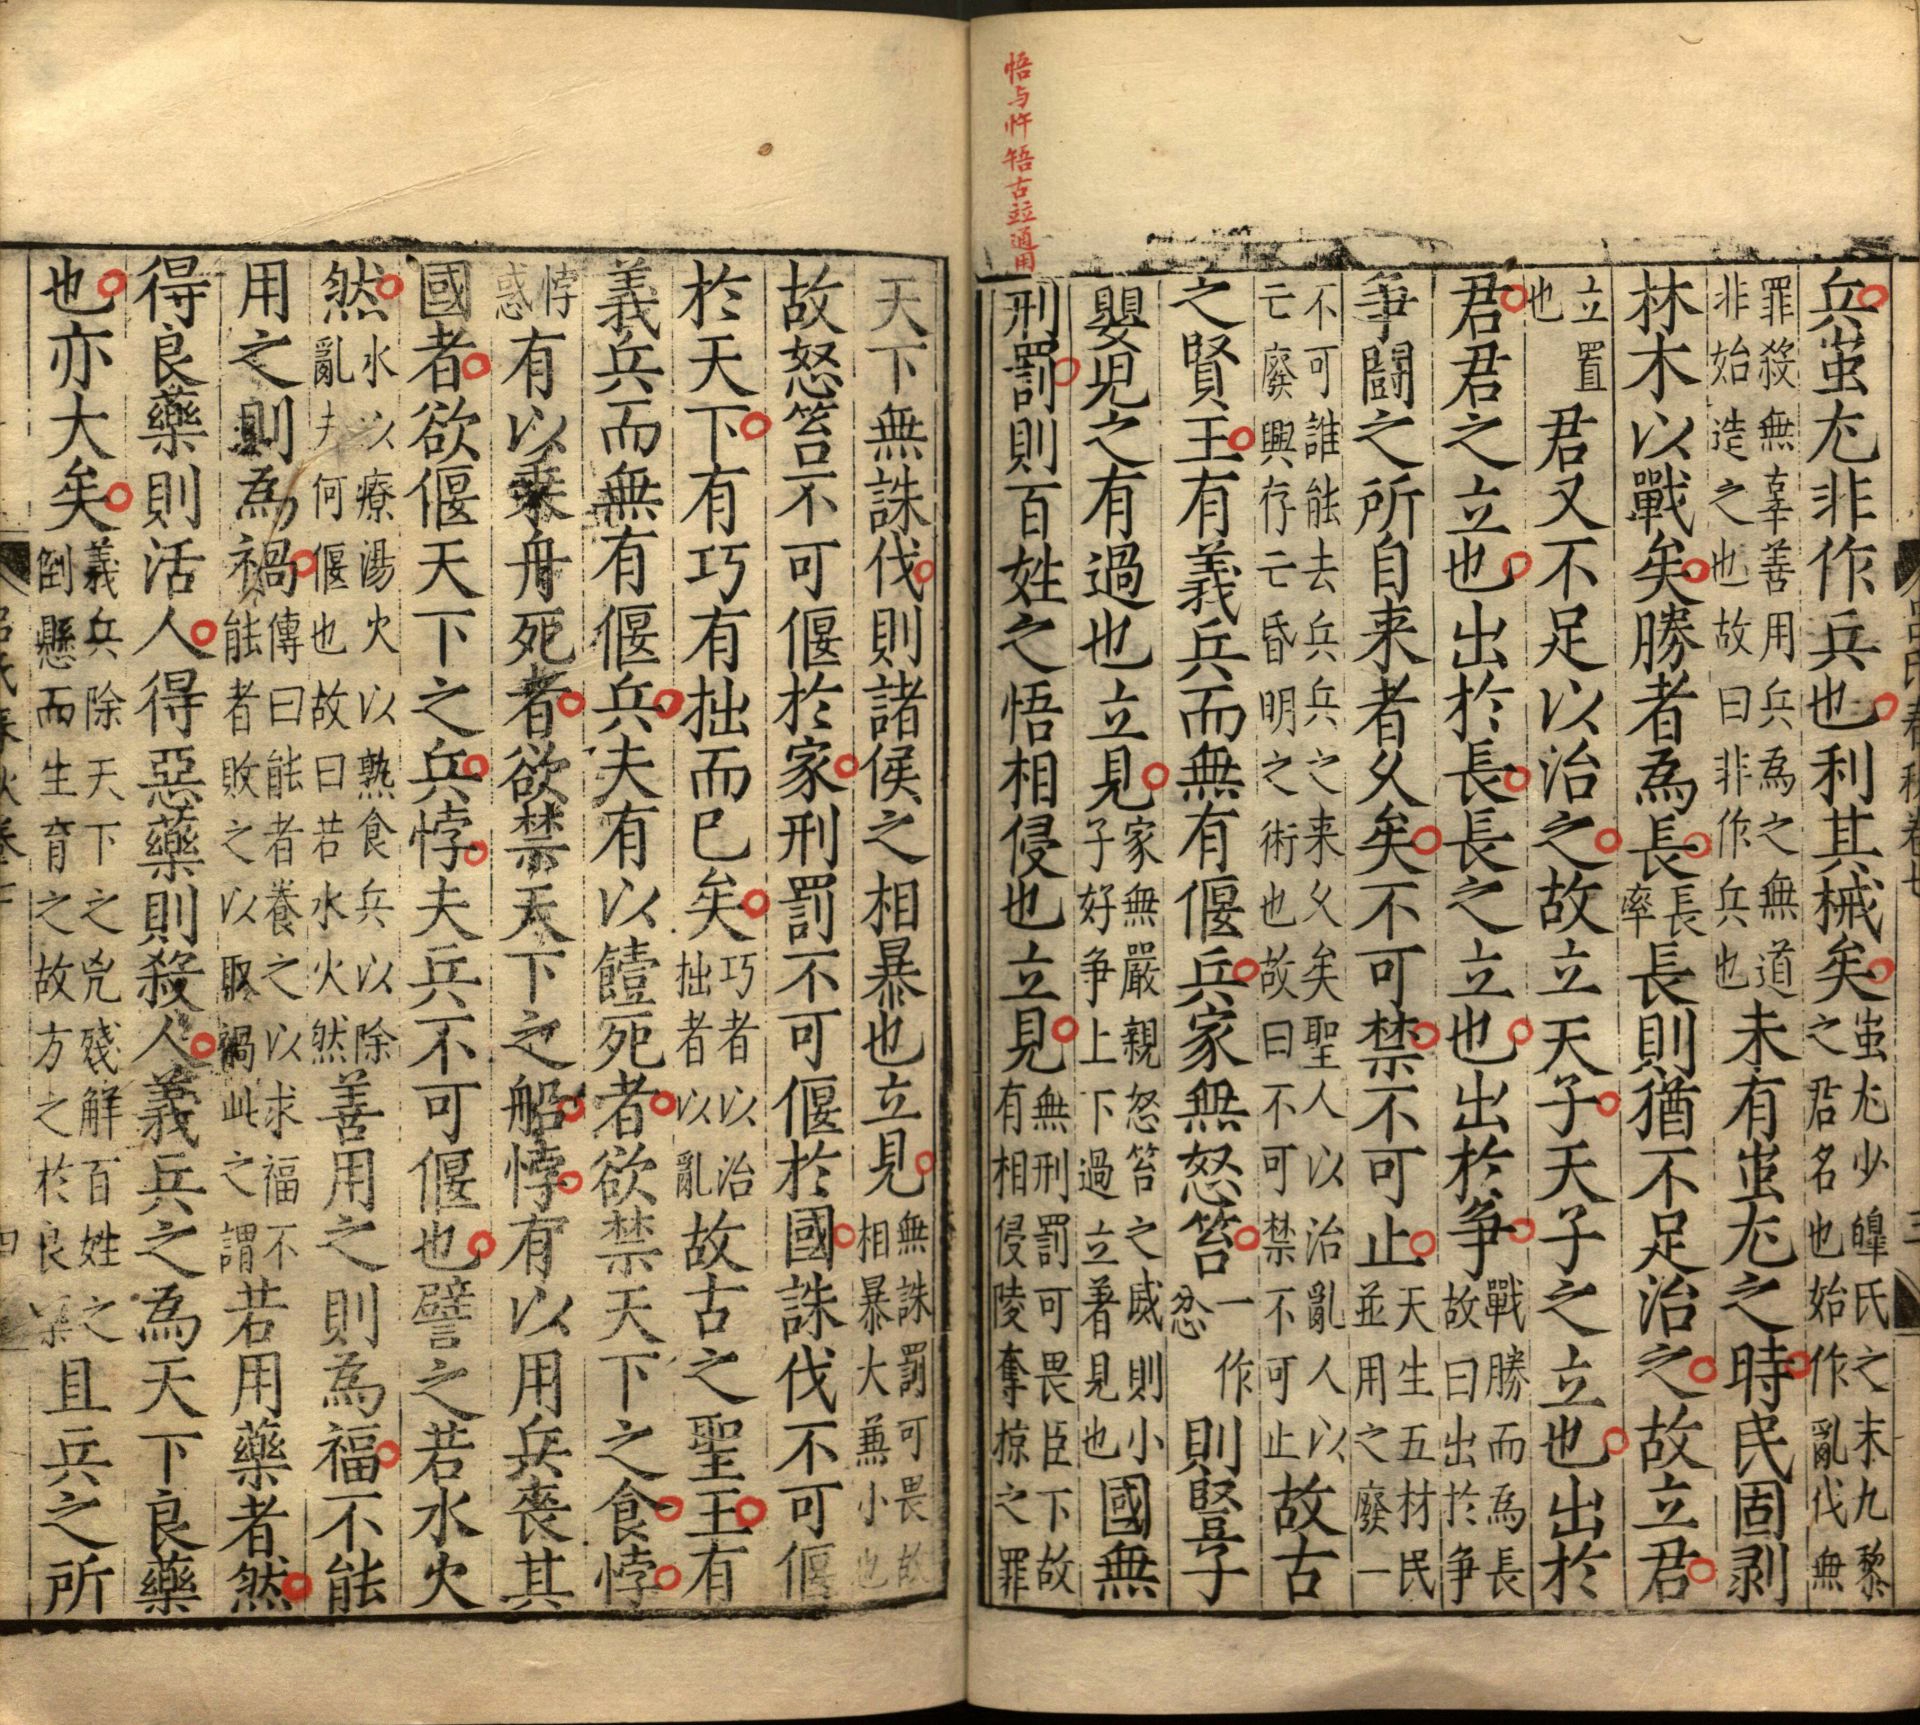 悟与忤啎古竝通用
兵蚩尤非作兵也利其械矣蚩尤少皥氏之末九黎之君名也始作亂伐無
罪殺無辜善用兵為之無道非始造之也故曰非作兵也未有蚩尤之時民固剥
林木以戰矣勝者為長長率長則猶不足治之故立君
立置也君又不足以治之故立天子天子之立也出於
君君之立也出於長長之立也出於争戰勝而為長故曰出於争
争鬭之所自来者久矣不可禁不可止天生五材民並用之廢一
不可誰能去兵兵之来久矣聖人以治亂人以亡廢興存亡昏明之術也故曰不可禁不可止故古
之賢王有義兵而無有偃兵家無怒笞一作忿則豎子
嬰児之有過也立見家無嚴親怒笞之威則小子好争上下過立著見也國無
刑罰則百姓之悟相侵也立見無刑罰可畏臣下故有相侵陵奪掠之罪
天下無誅伐則諸侯之相暴也立見無誅罰可畏故相暴大兼小也
故怒笞不可偃於家刑罰不可偃於國誅伐不可偃
於天下有巧有拙而已矣巧者以治拙者以亂故古之聖王有
義兵而無有偃兵夫有以饐死者欲禁天下之食悖
悖惑有以乗舟死者欲禁天下之船悖有以用兵喪其
國者欲偃天下之兵悖夫兵不可偃也譬之若水火
然水以療湯火以熟食兵以除亂夫何偃也故曰若水火然善用之則為福不能
用之則為禍傳曰能者養之以求福不能者敗之以取禍此之謂若用藥者然
得良藥則活人得惡藥則殺人義兵之為天下良藥
也亦大矣義兵除天下之兇殘解百姓之倒懸而生育之故方之於良藥且兵之所
呂氏春秋卷七
三
四